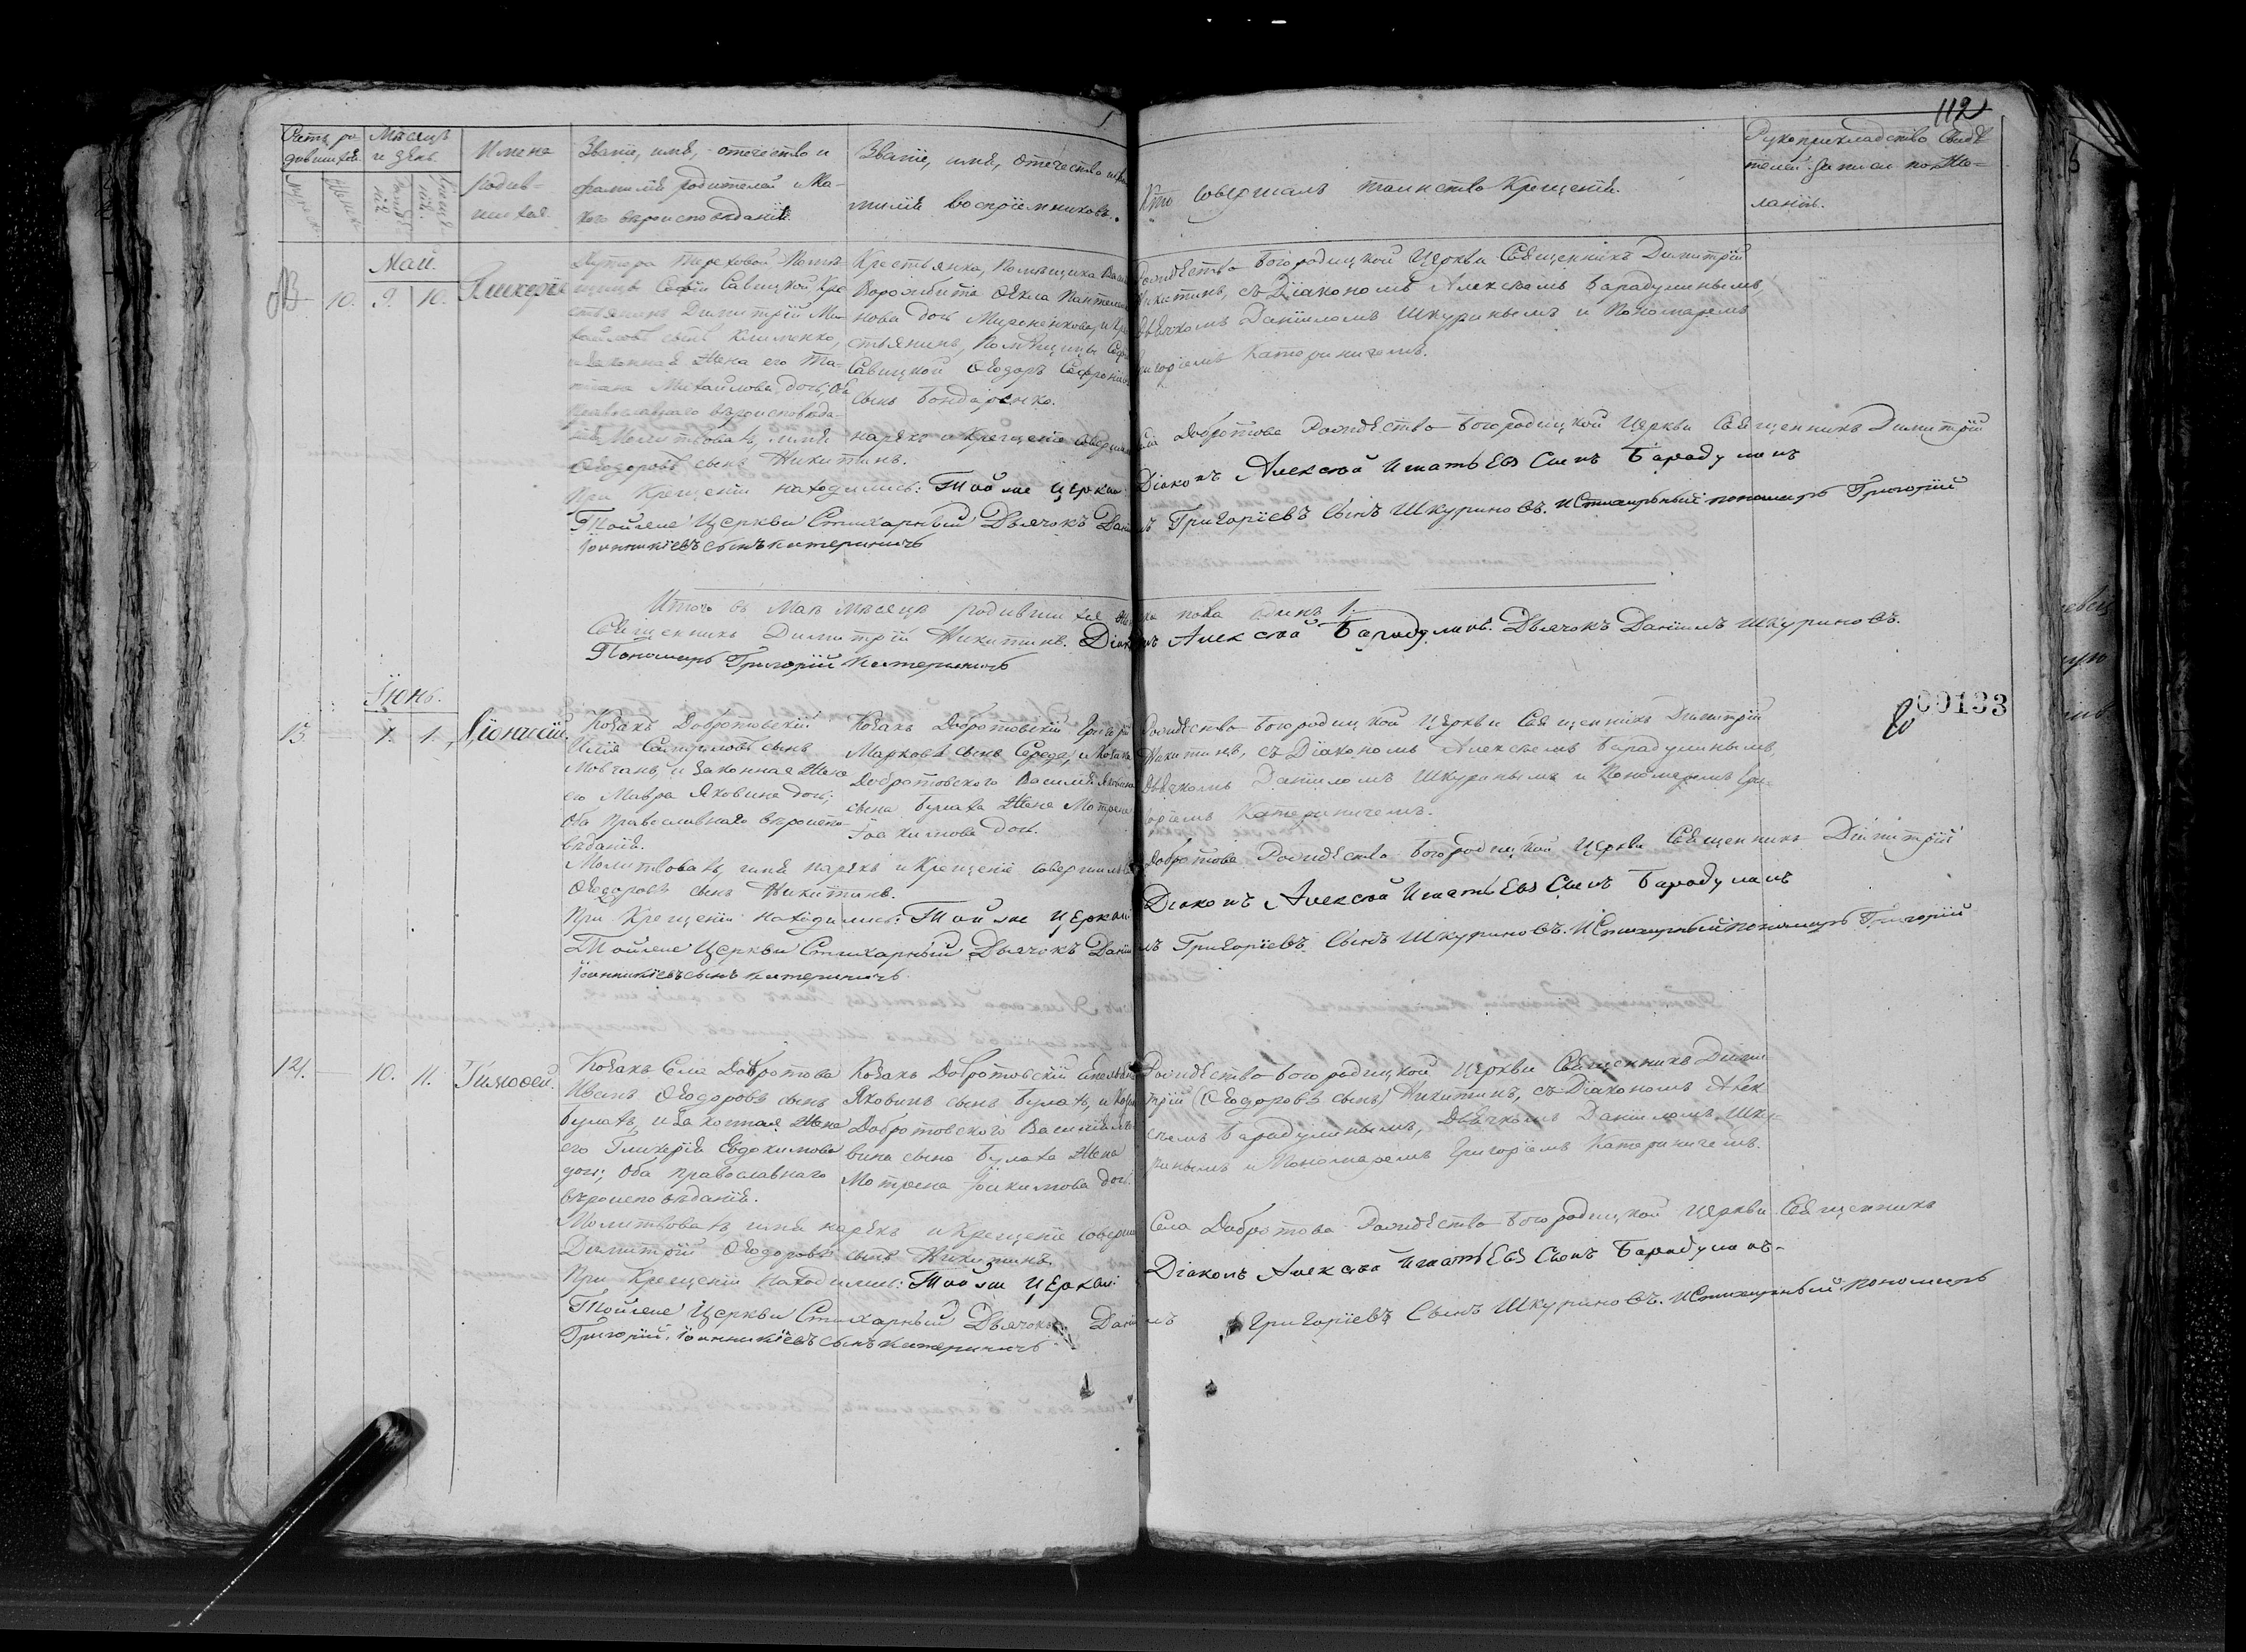 112
Счетъ ро-
дившихся.
Мѣсяцъ
и день.
Имена
родив-
шихся.
Званіе, имя, отечество и
фамилія родителей и ка-
кого вѣроисповѣданія.
Званіе, имя, отечество и фа-
милія воспріемниковъ.
Кто совершалъ таинство Крещенія.
Рукоприкладство свидѣ-
телей записи по же-
ланію.
Май.
10. 9. 10. Гликерія
Хутора Терховой Помѣ-
щицы Софіи Савицкой Кре
стьянинъ Димитрій Ми-
хайловъ сынъ Клименко,
и законная жена его Та-
тіана Михайлова дочь; оба
православнаго вѣроисповѣда-
нія
Крестьянка, Помѣщика
Ворожбита Ѳекла Пантелеимо
нова дочь Мироненкова, и Кре
стьянинъ, Помѣщицы Софіи
Савицкой Ѳеодоръ Софроніевъ
сынъ Бондаренко.
Рождество-Богородицкой Церкви Священникъ Димитрій
Никитинъ, съ Діакономъ Алексѣемъ Барадулинымъ,
Дьячкомъ Даніиломъ Шкуринымъ и Пономаремъ
Григоріемъ Катериничемъ.
Молитвовалъ, имя нарекъ и Крещеніе совершилъ села Добротова Рождество-Богородицкой Церкви Священникъ Димитрій
Ѳеодоровъ сынъ Никитинъ.
При Крещеніи находились: Той же Церкви Діаконъ Алексѣй Игнатьевъ Сынъ Барадулинъ
Той же Церкви Стихарный Дьячокъ Даніилъ Григоріевъ Сынъ Шкуриновъ. И Стихарный пономарь Григорій
Іоанникіевъ сынъ Катериничъ
Итого въ Маѣ мѣсяцѣ родившихся женска пола одинъ 1.
Священникъ Димитрій Никитинъ. Діаконъ Алексѣй Барадулинъ. Дьячокъ Даніилъ Шкуриновъ.
Пономарь Григорій Катериничъ
Іюнь.
00133
13. 1. 1. Діонисій.
Козакъ Добротовскій
сынъ
Мовчанъ, и законная жена
его Мавра Яковина дочь;
оба православнаго вѣроиспо-
вѣданія.
Козакъ Добротовскій Григорій
Марковъ сынъ Середа, и Козака
Добротовского Василія Яковина
сына Булаха жена Мотрона
Іоакимова дочь.
Рождество-Богородицкой Церкви Священникъ Димитрій
Никитинъ, съ Діакономъ Алексѣемъ Барадулинымъ,
Дьячкомъ Даніиломъ Шкуринымъ и Пономаремъ Гри-
горіемъ Катериничемъ.
Молитвовалъ, имя нарекъ и Крещеніе совершилъ села Добротова Рождество Богородицкой Церкви Священникъ Димитрій
Ѳеодоровъ сынъ Никитинъ.
При Крещеніи находились: Той же Церкви Діаконъ Алексѣй Игнатьевъ Сынъ Барадулинъ
Той же Церкви Стихарный Дьячокъ Даніилъ Григоріевъ Сынъ Шкуриновъ. И Стихарный пономарь Григорій
Іоанникіевъ сынъ Катериничъ.
14. 10. 11. Тимоѳей.
Козакъ Села Добротова
Иванъ Ѳеодоровъ сынъ
Булахъ, и законная жена
его Гликерія Евдокимова
дочь; оба православнаго
вѣроисповѣданія.
Козакъ Добротовскій
Яковинъ сынъ Булахъ, и Козака
Добротовского Василія Яко
вина сына Булаха жена
Мотрона Іоакимова дочь.
Рождество-Богородицкой Церкви Священникъ Дими
трій (Ѳеодоровъ сынъ) Никитинъ, съ Діакономъ Алек
сѣемъ Барадулинымъ, Дьячкомъ Даніиломъ Шку-
ринымъ и Пономаремъ Григоріемъ Катериничемъ.
Молитвовалъ, имя нарекъ и Крещеніе совершилъ Села Добротова Рождество-Богородицкой Церкви Священникъ
Димитрій Ѳеодоровъ сынъ Никитинъ.
При Крещеніи находились: Той же Церкви Діаконъ Алексѣй Игнатьевъ Сынъ Барадулинъ.
Той же Церкви Стихарный Дьячокъ Даніилъ Григоріевъ Сынъ Шкуриновъ. И Стихарный пономарь
Григорій Іоанникіевъ сынъ Катериничъ.